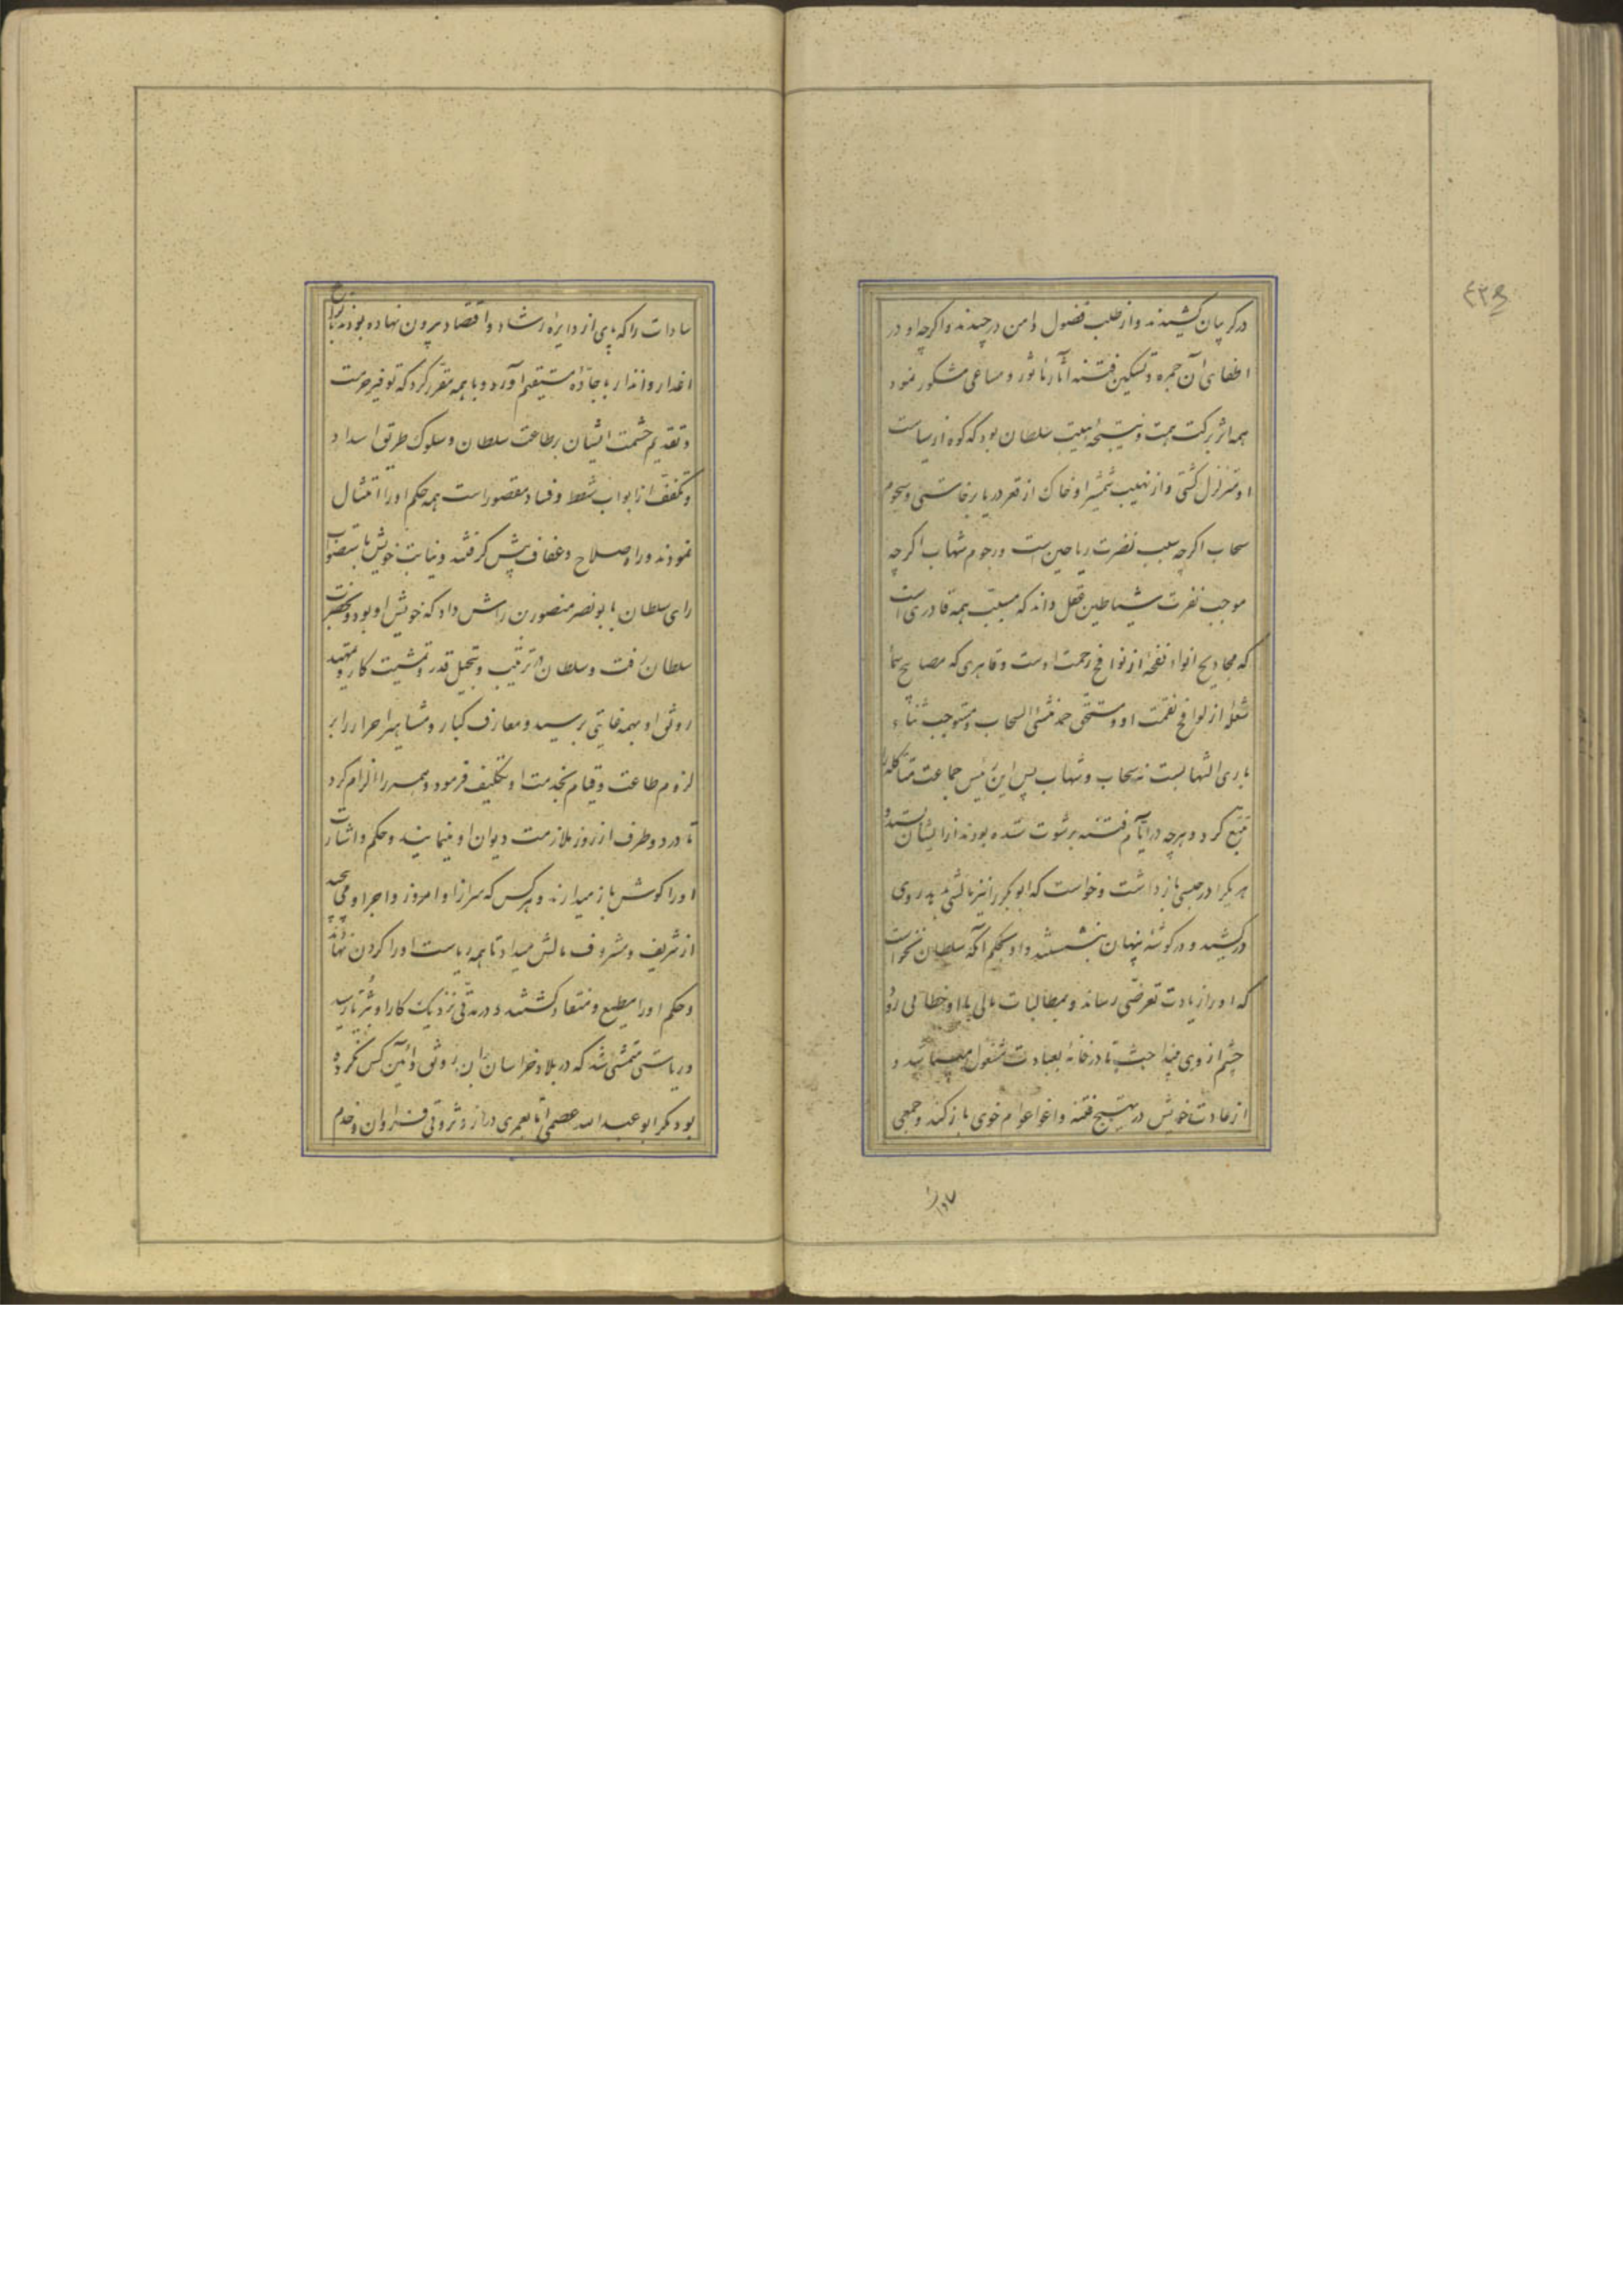 در کریبان کشیدند و از طلب فضول دامن در چیدند و اکرچه او در
اطفای آن جمره و تسکین فتنه آثار ماثور و مساعی مشکور نمود
همه اثر برکت همت و نتیجۀ هیبت سلطان بود که کوه از سیاست
او متزلزل کشتی و از نهیب شمشیر او خاک از قعر دریا برخاستی و سجوم
سحاب اکرچه سبب نضرت ریاحین است و رجوم شهاب اکرچه
موجب نفرت شیاطین عقل داند که مسبب همه قادری است
که مجادیح انواء نفحۀ از نوافح رحمت اوست و قاهری که مصابیح سما
شعلۀ از لوافح نقمت او و مستحق حمد منشئ السحاب و مستوجب ثناء
باری الشهابست نه سحاب و شهاب پس این رئیس جماعت متاکله را
تتبع کرد و هرچه در ایام فتنه برشوت ستده بودند از ایشان بستد و
هر یکرا در حبسی باز داشت و خواست که ابوبکر را نیز مالشی بدهد روی
درکشید و در کوشۀ پنهان بنشست و او بحکم آنکه سلطان نخواست
که او را زیادت تعرضی رساند و بمطالبات مالی با او خطابی رود
چشم از وی فرا
در خانه بعبادت مشغول میباشد و
از عادت خویش در تهییج فتنه و اغواء عوام خوی باز کند و جمعی
سادات را که پای از دایره رشاد و اقتصاد بیرون نهاده بودند
اعذار و انذار با جادۀ مستقیم آورد و با همه مقرر کرد که توفیر حرمت
و تقدیم حشمت ایشان بر طاعت سلطان و سلوک طریق سداد
و تعفف از ابواب شطط و فساد مقصور است همه حکم او را امتثال
نمودند و راه صلاح و عفاف پیش کرفتند و نیابت خویش باستصواب
رای سلطان بابو نصر منصور بن رامش داد که خویش او بود و بحضرت
سلطان رفت و سلطان در ترتیب و تبجیل قدر و تمشیت کار و تمهید
رونق او بهمه غایتی برسید و معارف کبار و مشاهیر احرار را بر
لزوم طاعت و قیام بخدمت او تکلیف فرمود و همه را الزام کرد
تا در دو طرف از روز ملازمت دیوان او مینمایند و حکم و اشارت
او را کوش باز میدارند و هرکس که سر از اوامر و زواجر او می پیچید
از شریف و مشروف مالش میداد تا همه ریاست او را کردن نهادند
و حکم او را مطیع و منقاد کشتند و در مدتی نزدیک کار او بثریا رسید
و ریاستی متمشی شد که در بلاد خراسان بدان رونق و آئین کس نکرده
بود مکر ابو عبدالله عصمی اما بعمری دراز و ثروتی فراوان و خدم